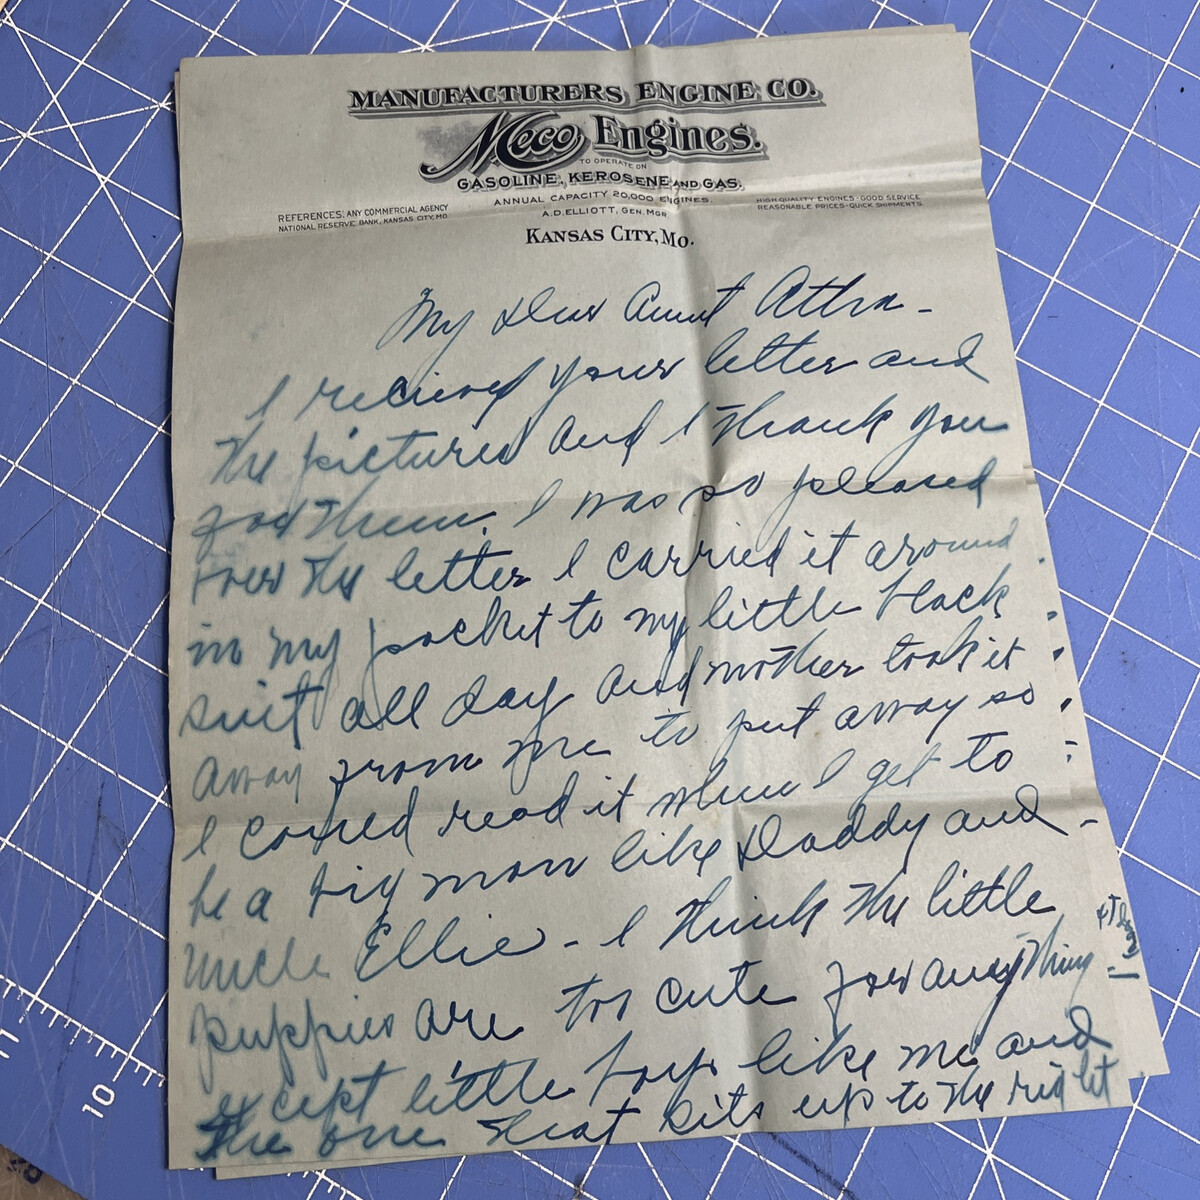 MANUFACTURERS ENGINE CO.
Meco Engines.
TO OPERATE ON
GASOLINE, KEROSENE AND GAS.
ANNUAL CAPACITY 20,000 ENGINES.
REFERENCES: ANY COMMERCIAL AGENCY
NATIONAL RESERVE BANK, KANSAS CITY, MO.
A.D. ELLIOTT, GEN. MGR.
HIGH QUALITY ENGINES-GOOD SERVICE
REASONABLE PRICES-QUICK SHIPMENTS.
KANSAS CITY, MO.
My dear Aunt Attra -
I recieved your letter and
the pictures and I thank you
for them. I was so pleased
over the letter I carried it around
in my pocket to my little black
suit all day and mother took it
away from me to put away so
I could read it when I get to
be a big man like Daddy and -
Uncle Ellie - I think the little
puppies are too cute for anything -
except little boys like me and
the one that sits up to the right
11
10